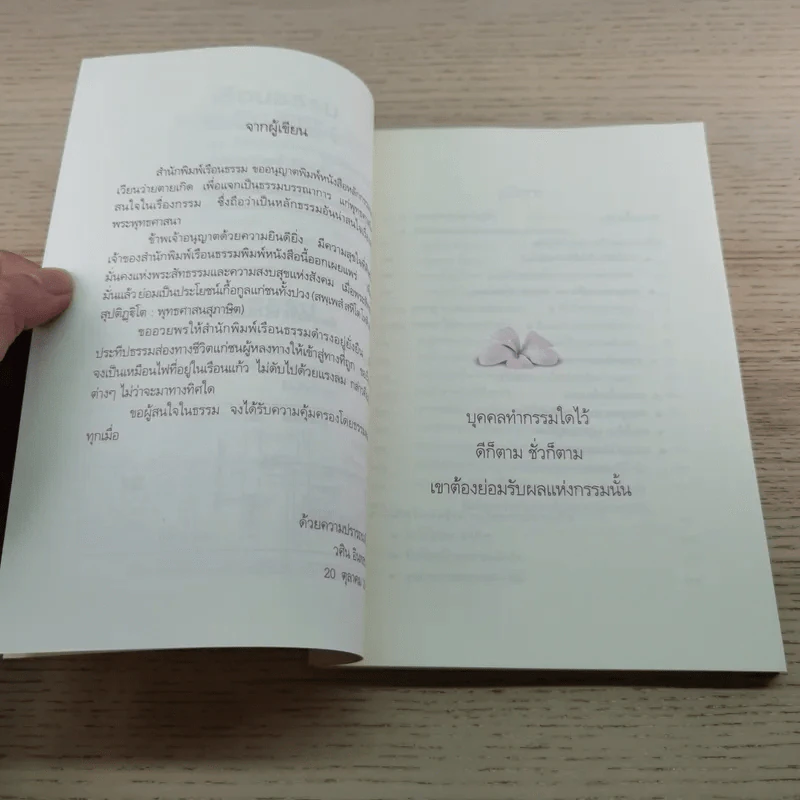 จากผู้เขียน
สำนักพิมพ์เรือนธรรม ขออนุญาตพิมพ์หนังสือหลักกรรม
เวียนว่ายตายเกิด เพื่อแจกเป็นธรรมบรรณาการ แก่
สนใจในเรื่องกรรม ซึ่งถือว่าเป็นหลักธรรมอันน่าสนใจ
พระพุทธศาสนา
ข้าพเจ้าอนุญาตด้วยความยินดียิ่ง มีความสุขใจที่
เจ้าของสำนักพิมพ์เรือนธรรมพิมพ์หนังสือนี้ออกเผยแพร่
มั่นคงแห่งพระสัทธรรมและความสงบสุขแห่งสังคม เมื่อ
มั่นแล้ว ย่อมเป็นประโยชน์เกื้อกูลแก่ชนทั้งปวง (สพฺเพสํ สหิโต
สุปติฏฺฐิโต : พุทธศาสนสุภาษิต)
ขออวยพรให้สำนักพิมพ์เรือนธรรมดำรงอยู่ยั่งยืน
ประทีปธรรมส่องทางชีวิตแก่ชนผู้หลงทางให้เข้าสู่ทางที่ถูก
จงเป็นเหมือนไฟที่อยู่ในเรือนแก้ว ไม่ดับไปด้วยแรงลม
ต่างๆ ไม่ว่าจะมาทางทิศใด
ขอผู้สนใจในธรรม จงได้รับความคุ้มครองโดยธรรม
ทุกเมื่อ
ด้วยความปรารถนา
วศิน
20 ตุลาคม
บุคคลทำกรรมใดไว้
ดีก็ตาม ชั่วก็ตาม
เขาต้องย่อมรับผลแห่งกรรมนั้น